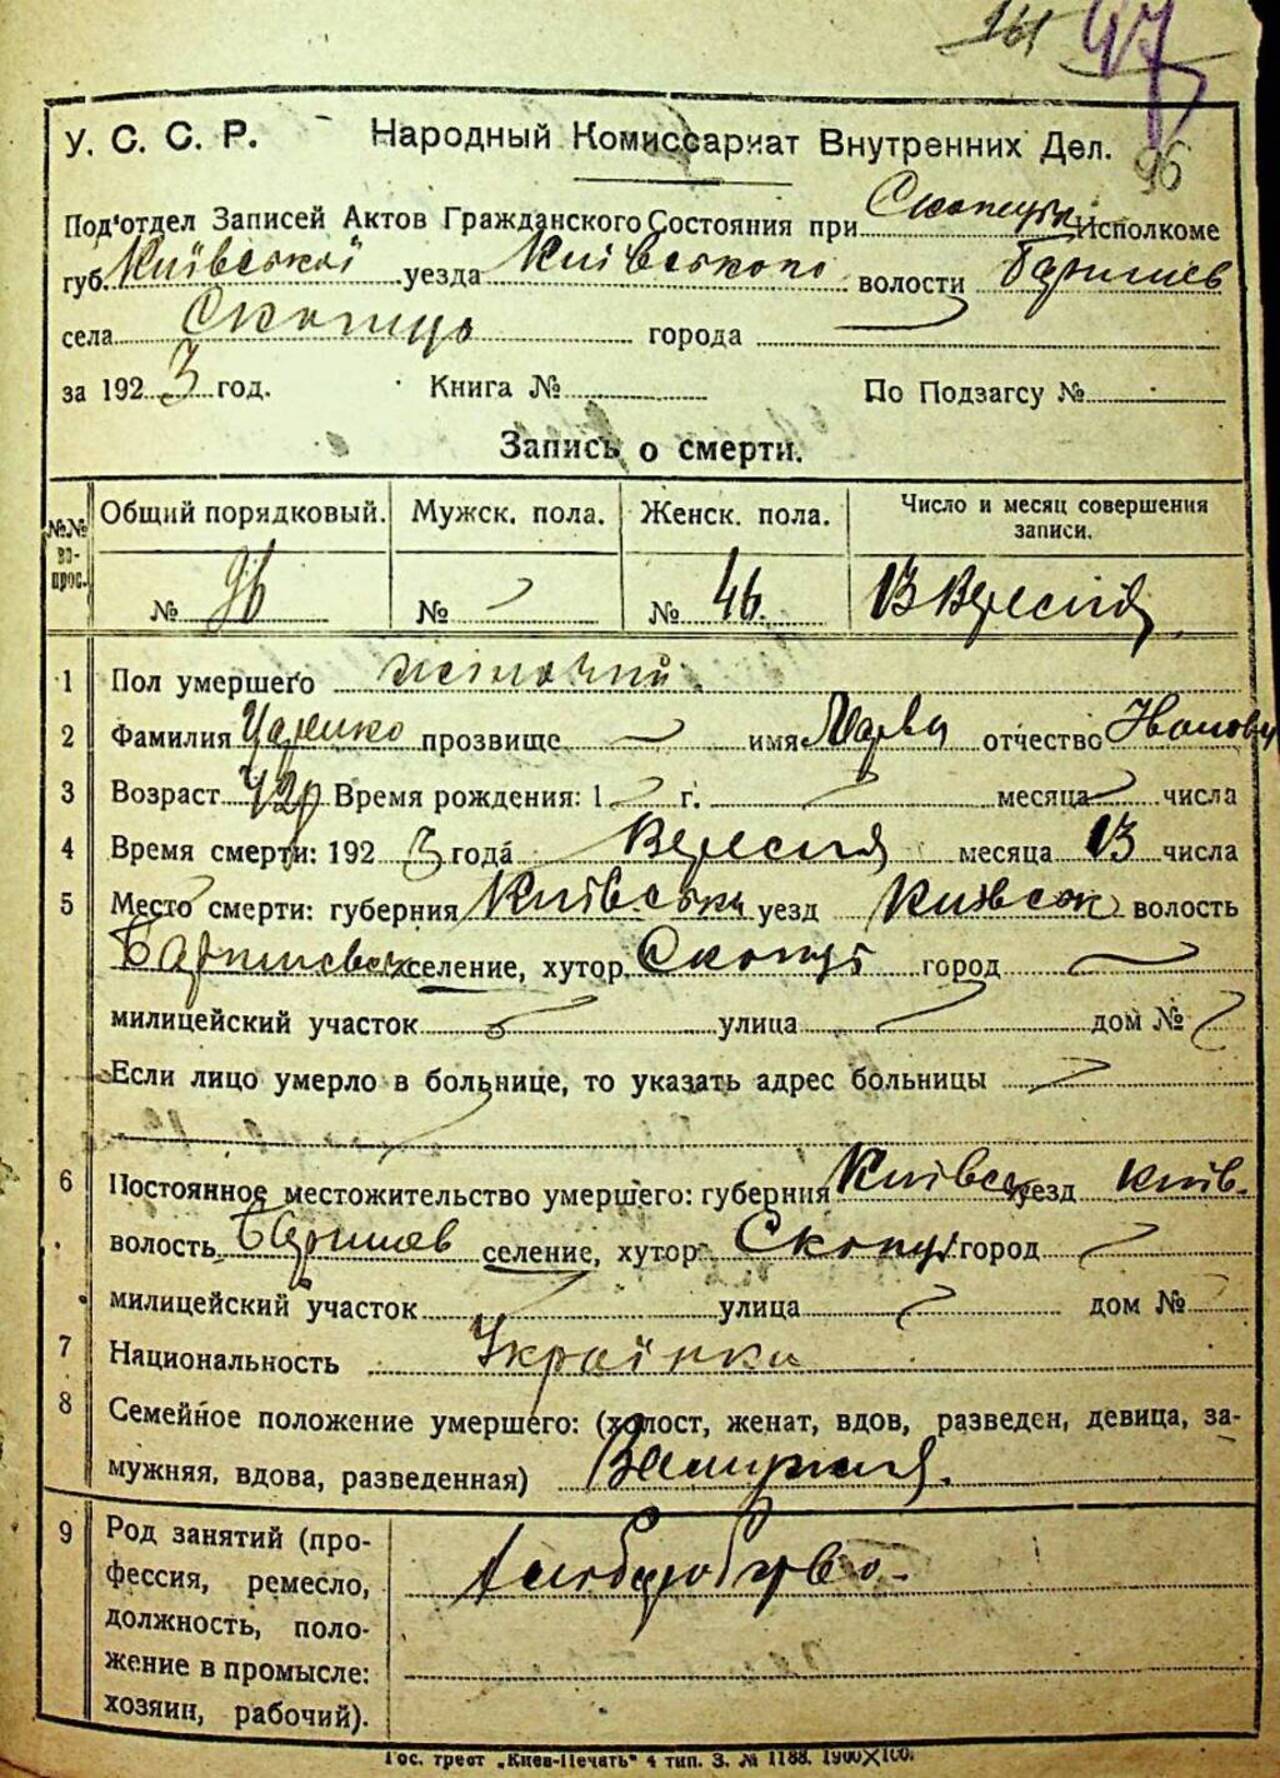 161 47
У. С. С. Р. Народный Комиссариат Внутренних Дел.
96
Под'отдел Записей Актов Гражданского Состояния при Скопцях Исполкоме
губ. Київської уезда Київського волости Баришев
села Скопцю города
за 1923 год. Книга № По Подзагсу №
Запись о смерти.
№№ вопрос. Общий порядковый. Мужск. пола. Женск. пола. Число и месяц совершения записи.
№ 96 № № 46. 13 Вересня
1 Пол умершего жіночий.
2 Фамилия прозвище имя Марья отчество Иванова
3 Возраст 42р Время рождения: 1 г. месяца числа
4 Время смерти: 1923 года Вересня месяца 13 числа
5 Место смерти: губерния Київська уезд Київськ волость
Баришевск селение, хутор Скопці город
милицейский участок улица дом №
Если лицо умерло в больнице, то указать адрес больницы
6 Постоянное местожительство умершего: губерния Київськ уезд Київ.
волость Баришев селение, хутор Скопці город
милицейский участок улица дом №
7 Национальность Українка
8 Семейное положение умершего: (холост, женат, вдов, разведен, девица, за-
мужняя, вдова, разведенная) Замужня.
9 Род занятий (про-
фессия, ремесло, хліборобство.
должность, поло-
жение в промысле:
хозяин, рабочий).
Гос. трест „Киев-Печать" 4 тип. З. № 1188. 1900×100.